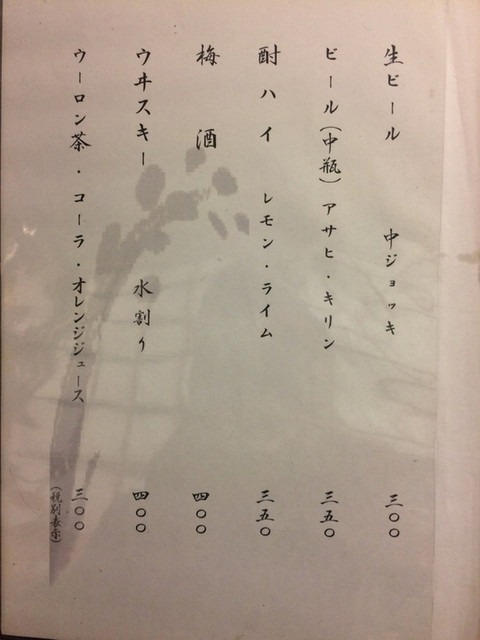 生ビール 中ジョッキ 三〇〇
ビール(中瓶) アサヒ・キリン 三五〇
酎ハイ レモン・ライム 三五〇
梅酒 四〇〇
ウヰスキー 水割り 四〇〇
ウーロン茶・コーラ・オレンジジュース 三〇〇
(税別表示)